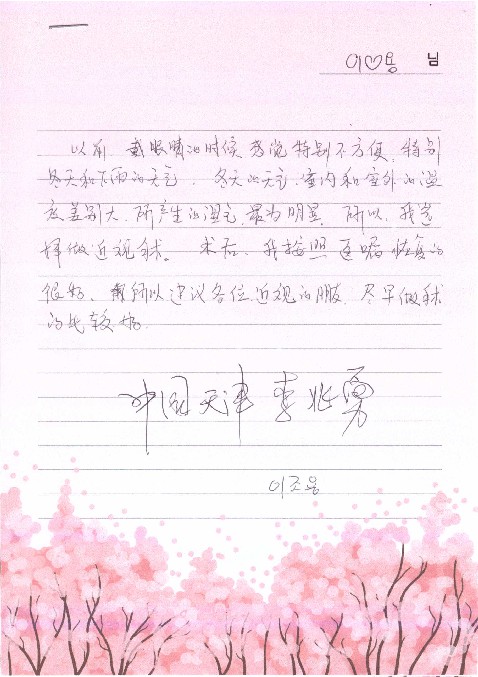 이♡용 님
以前 戴眼睛的时候 感觉特别不方便，特别
冬天和下雨的天气．冬天的天气，室内和室外的温
度差别大，所产生的湿气最为明显．所以，我选
择做近视术。术后，我按照医嘱恢复的
很好、所以建议各位近视的朋友 尽早做术
的比较好．
中国天津 李兆勇
이조용